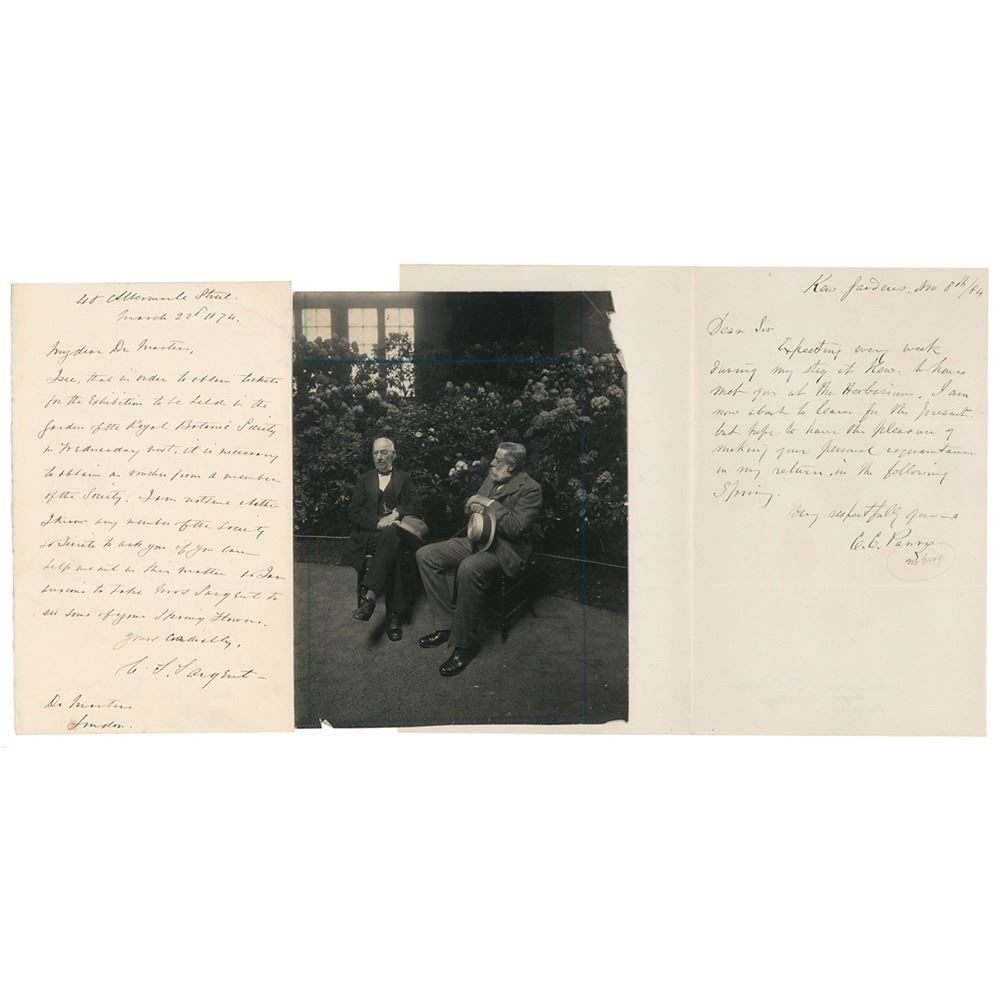 48 Albermarle Street.
March 22d 1874.
My dear Dr Masters,
I see, that in order to obtain tickets
for the Exhibition to be held in the
garden of the Royal Botanic Society
on Wednesday next, it is necessary
to obtain an voucher from a member
of the Society. I am not sure whether
I know any member of the society
so I write to ask you if you can
help me out in this matter as I am
anxious to take Mrs Sargent to
see some of your Spring Flowers.
Yours cordially,
C. S. Sargent
Dr Masters
London.
Kew Gardens, Nov 8th/84
Dear Sir
Expecting every week
during my stay at Kew, to have
met you at the Herbarium, I am
now about to leave for the present
but hope to have the pleasure of
making your personal acquaintance
on my return, in the following
Spring.
Very respectfully yours
C. C. Parry